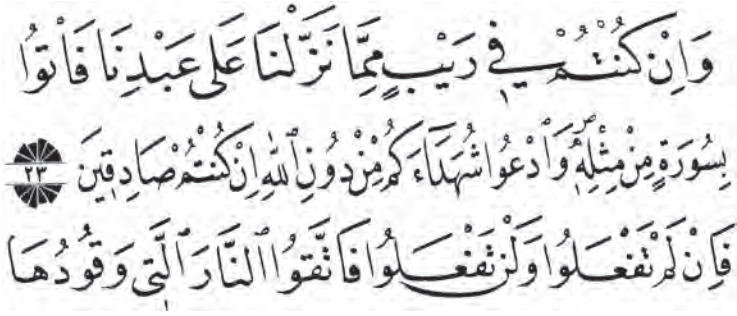 وَاِنْ كُنْتُمْ فٖي رَيْبٍ مِمَّا نَزَّلْنَا عَلٰى عَبْدِنَا فَأْتُوا
بِسُورَةٍ مِنْ مِثْلِهٖۖ وَٱدْعُوا شُهَدَٓاءَكُمْ مِنْ دُونِ ٱللّٰهِ اِنْ كُنْتُمْ صَادِقٖينَ ٢٣
فَاِنْ لَمْ تَفْعَلُوا وَلَنْ تَفْعَلُوا فَاتَّقُوا ٱلنَّارَ ٱلَّتٖي وَقُودُهَا